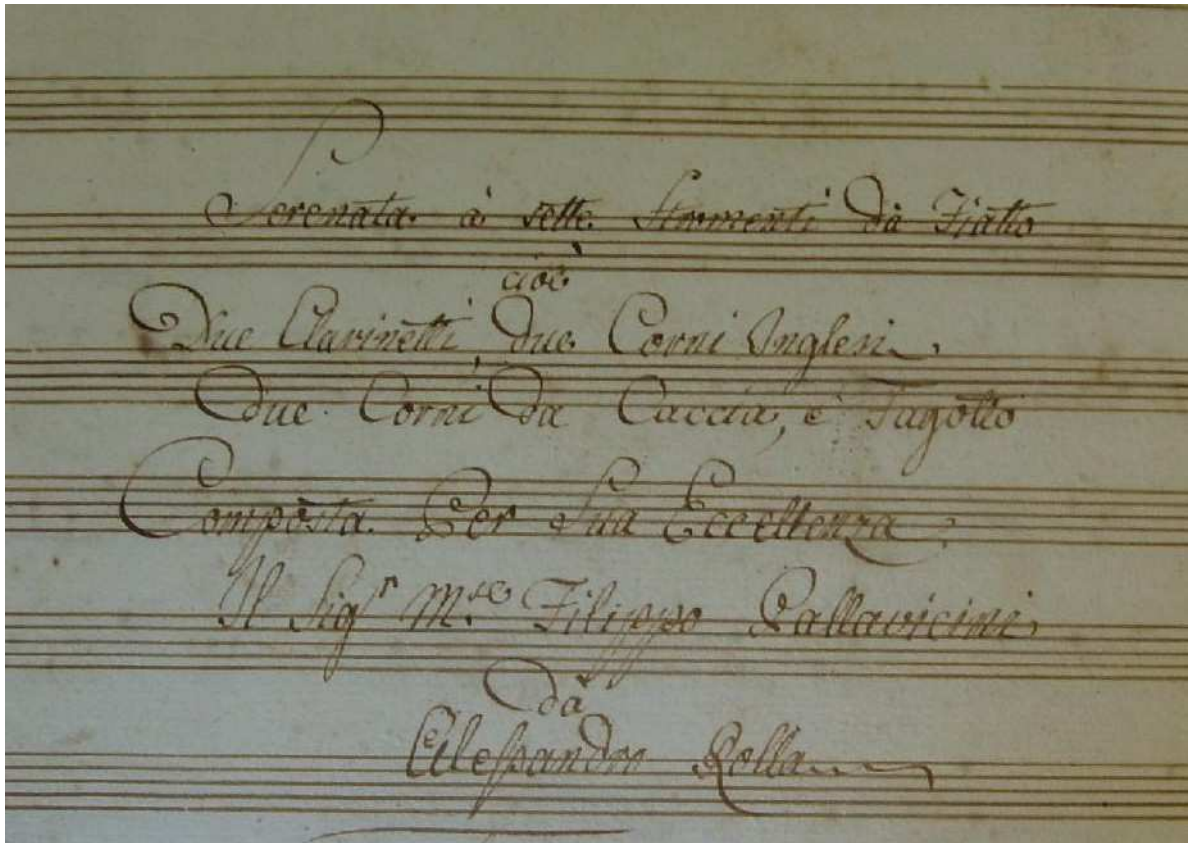 Serenata à sette Stromenti dà Fiatto
cioè
Due Clarinetti, due Corni Inglesi
due Corni da Caccia, è Fagotto
Composta Per Sua Eccellenza
Il Sigr Mse Filippo Pallavicini
dà
Alessandro Rolla